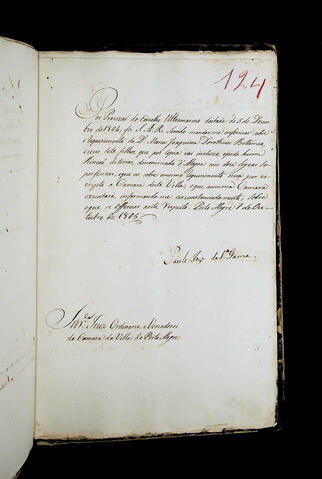 124
Por Provizaõ do Conselho Ultramarino datada de 5 de Dezem
bro de 1804, foi S. A. R. servido mandar-me informar sobre
o requerimento de D. Maria Joaquina Dorothea
e seus sete filhos, que por copia vai incluzo, pede huma
de terras, denominada d'Alegre com tres legoas de
Superficie, e que sobre o mesmo requerimento ouça por es
cripto a Camara desta Villa; o que a mesma Camara
executará informando-me circunstanciadamente, sobre
o que se offerecer a este respeito. Porto Alegre 1 de Ou
tubro de 1805.
Paulo Joze da S.ª Gama
Snr.es Juiz Ordinario e Vereadores
da Camara da Villa de Porto Alegre